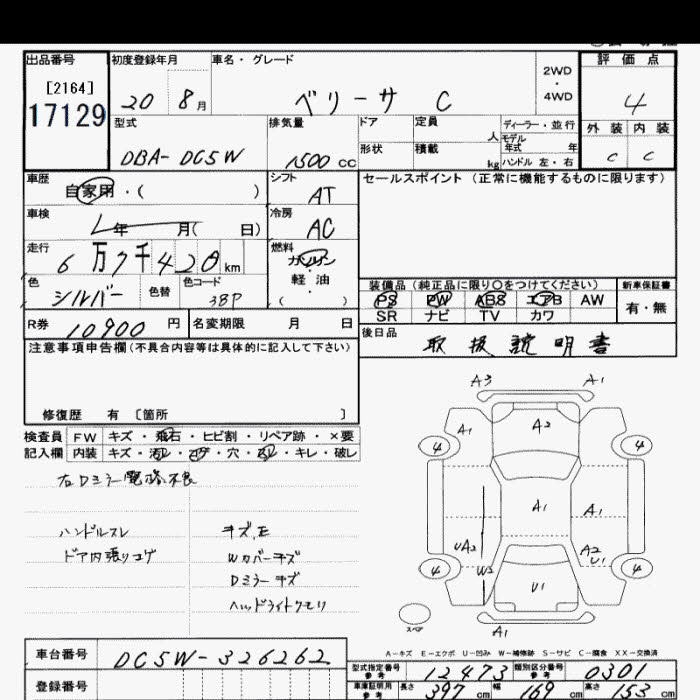 出品番号 初度登録年月 車名・グレード 2WD・4WD 評価点
[2164]
17129 20 8月 ベリーサ C 4
型式 排気量 ドア 定員 人 ディーラー・並行 外装 内装
モデル年式 年
DBA-DC5W 1500cc 形状 積載 kg ハンドル 左・右 C C
車歴 自家用・( ) シフト AT セールスポイント (正常に機能するものに限ります)
車検 年 月( 日) 冷房 AC
走行 6万7千420km 燃料 ガソリン・軽油 ( )
色 シルバー 色替 色コード 38P
装備品 (純正品に限り○をつけてください) 新車保証書
PS PW ABS エアB AW 有・無
SR ナビ TV カワ
R券 10900円 名変期限 月 日 後日品 取扱説明書
注意事項申告欄(不具合内容等は具体的に記入して下さい)
修復歴 有 〔箇所 〕
検査員 FW キズ・飛石・ヒビ割・リペア跡・×要
記入欄 内装 キズ・汚レ・コゲ・穴・スレ・キレ・破レ
右Dミラー電格不良
ハンドルスレ キズ,E
ドア内張りコゲ Wカバーキズ
Dミラーキズ
ヘッドライトクモリ
A3 A1
A1 A2
4 4
A1 A1
UA2 A2
W2 U1
4 U1 4
スペア
A1
A-キズ E-エクボ U-凹み W-補修跡 S-サビ C-腐食 XX-交換済
車台番号 DC5W-326262
登録番号
型式指定番号 参考 12473 類別区分番号 参考 0301
車庫証明用 参考 長さ 397cm 幅 169cm 高さ 153cm